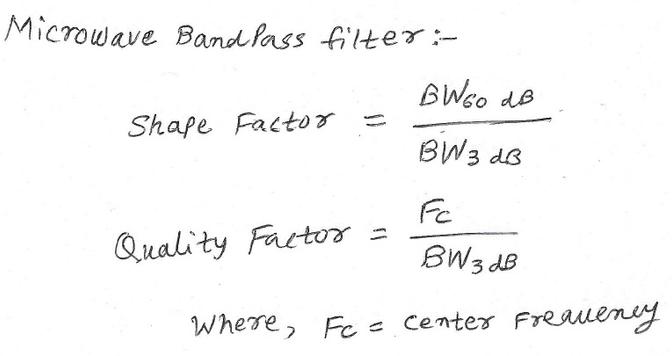 Microwave BandPass filter :-
Shape Factor = BW60 dB / BW3 dB
Quality Factor = Fc / BW3 dB
Where, Fc = center Frequency